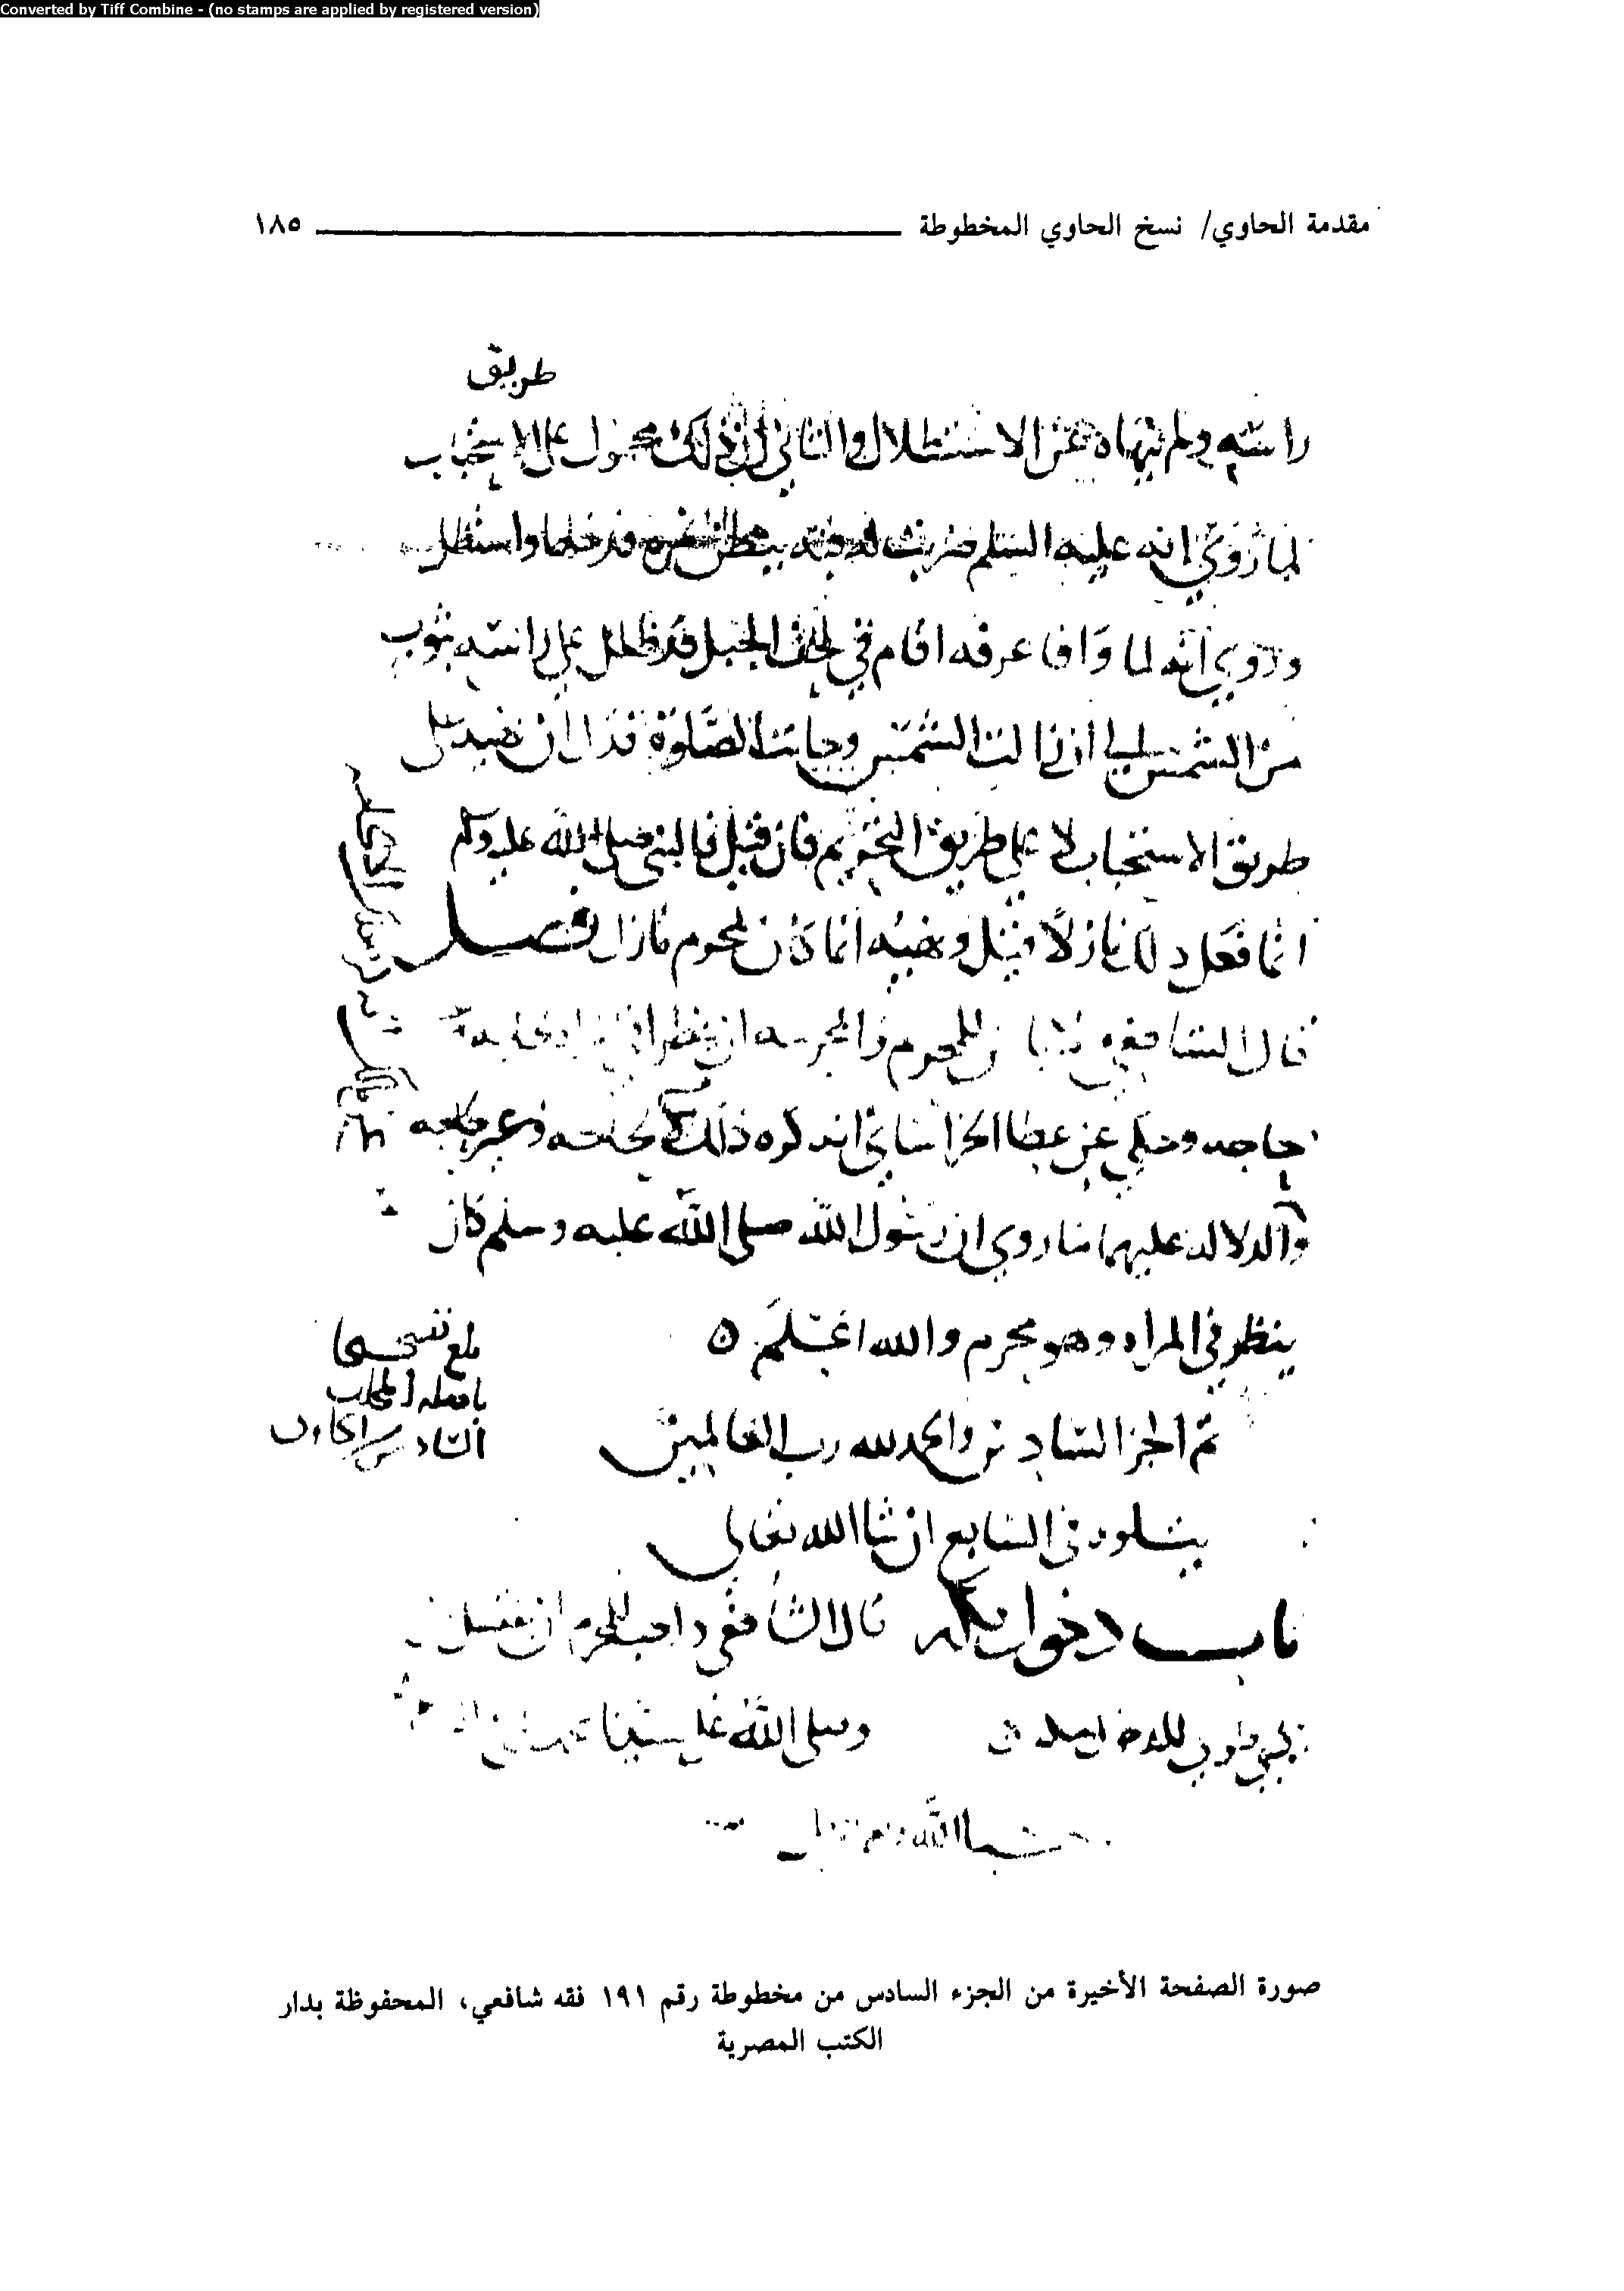 Converted by Tiff Combine - (no stamps are applied by registered version)
مقدمة الحاوي/ نسخ الحاوي المخطوطة ١٨٥
طريق
راسه ولم ينهاه عن الاستظلال والثاني ان ذلك محمول على الاستحباب
لما روي انه عليه السلم ضربت له قبة فدخلها واستظل
وروي انه لما وافا عرفه اقام في الجبل قد ظلل على راسه بثوب
من الشمس الى ان زالت الشمس وجات الصلوة فدل ان نهيه على
طريق الاستحباب لا على طريق التحريم فان قيل فالنبي صلى الله عليه وسلم
انما فعل ذلك نازلا قيل ونهيه انما كان لمحرم نازل فصل
قال الشافعي للمحرم والمحرمه ان ينظرا في
حاجه وحكي عن عطا الخراساني انه كره ذلك
والدلالة عليهما ما روي ان رسول الله صلى الله عليه وسلم كان
ينظر في المراه وهو محرم والله اعلم ه
تم الجز السادس والحمد لله رب العالمين
يتلوه في السابع ان شا الله تعالى
باب دخول مكه قال الشافعي واحب للمحرم ان يغتسل
ذي طوى وصلى الله على سيدنا
حسبنا الله
السادس الحاوي
صورة الصفحة الأخيرة من الجزء السادس من مخطوطة رقم ١٩١ فقه شافعي، المحفوظة بدار
الكتب المصرية